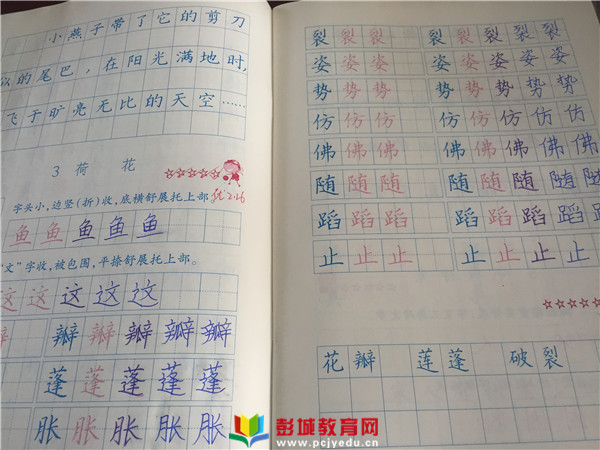 小燕子带了它的剪刀
似的尾巴，在阳光满地时，
飞于旷亮无比的天空……
3 荷 花
☆☆☆☆☆
字头小，边竖（折）收，底横舒展托上部
优 2.26
鱼鱼鱼鱼鱼
“文”字收，被包围，平捺舒展托上部。
这这这这这
瓣瓣瓣瓣瓣
蓬蓬蓬蓬蓬
胀胀胀胀胀
裂裂裂 裂裂裂裂裂
姿姿姿 姿姿姿姿姿
势势势 势势势势势
仿仿仿 仿仿仿仿仿
佛佛佛 佛佛佛佛佛
随随随 随随随随随
蹈蹈蹈 蹈蹈蹈蹈蹈
止止止 止止止止止
☆☆☆☆☆
花瓣 莲蓬 破裂
彭城教育网
www.pcjyedu.cn